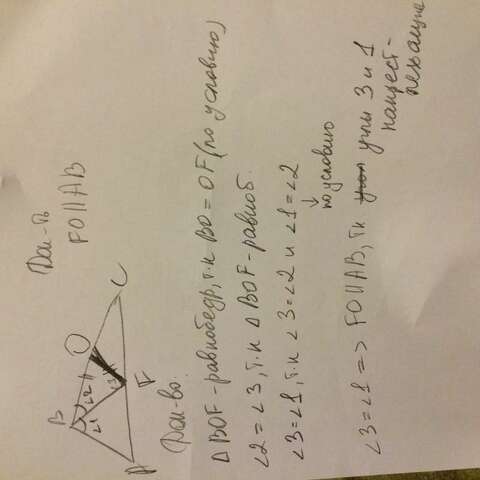 Док-ть
FO||AB
B
O
C
F
A
∠1
∠2
3
Док-во.
△BOF-равнобедр, т.к BO=OF (по условию)
∠2=∠3, т.к △BOF-равноб.
∠3=∠1, т.к ∠3=∠2 и ∠1=∠2
↓
по условию
∠3=∠1 => FO||AB, т.к углы 3 и 1
накрест-
лежащие